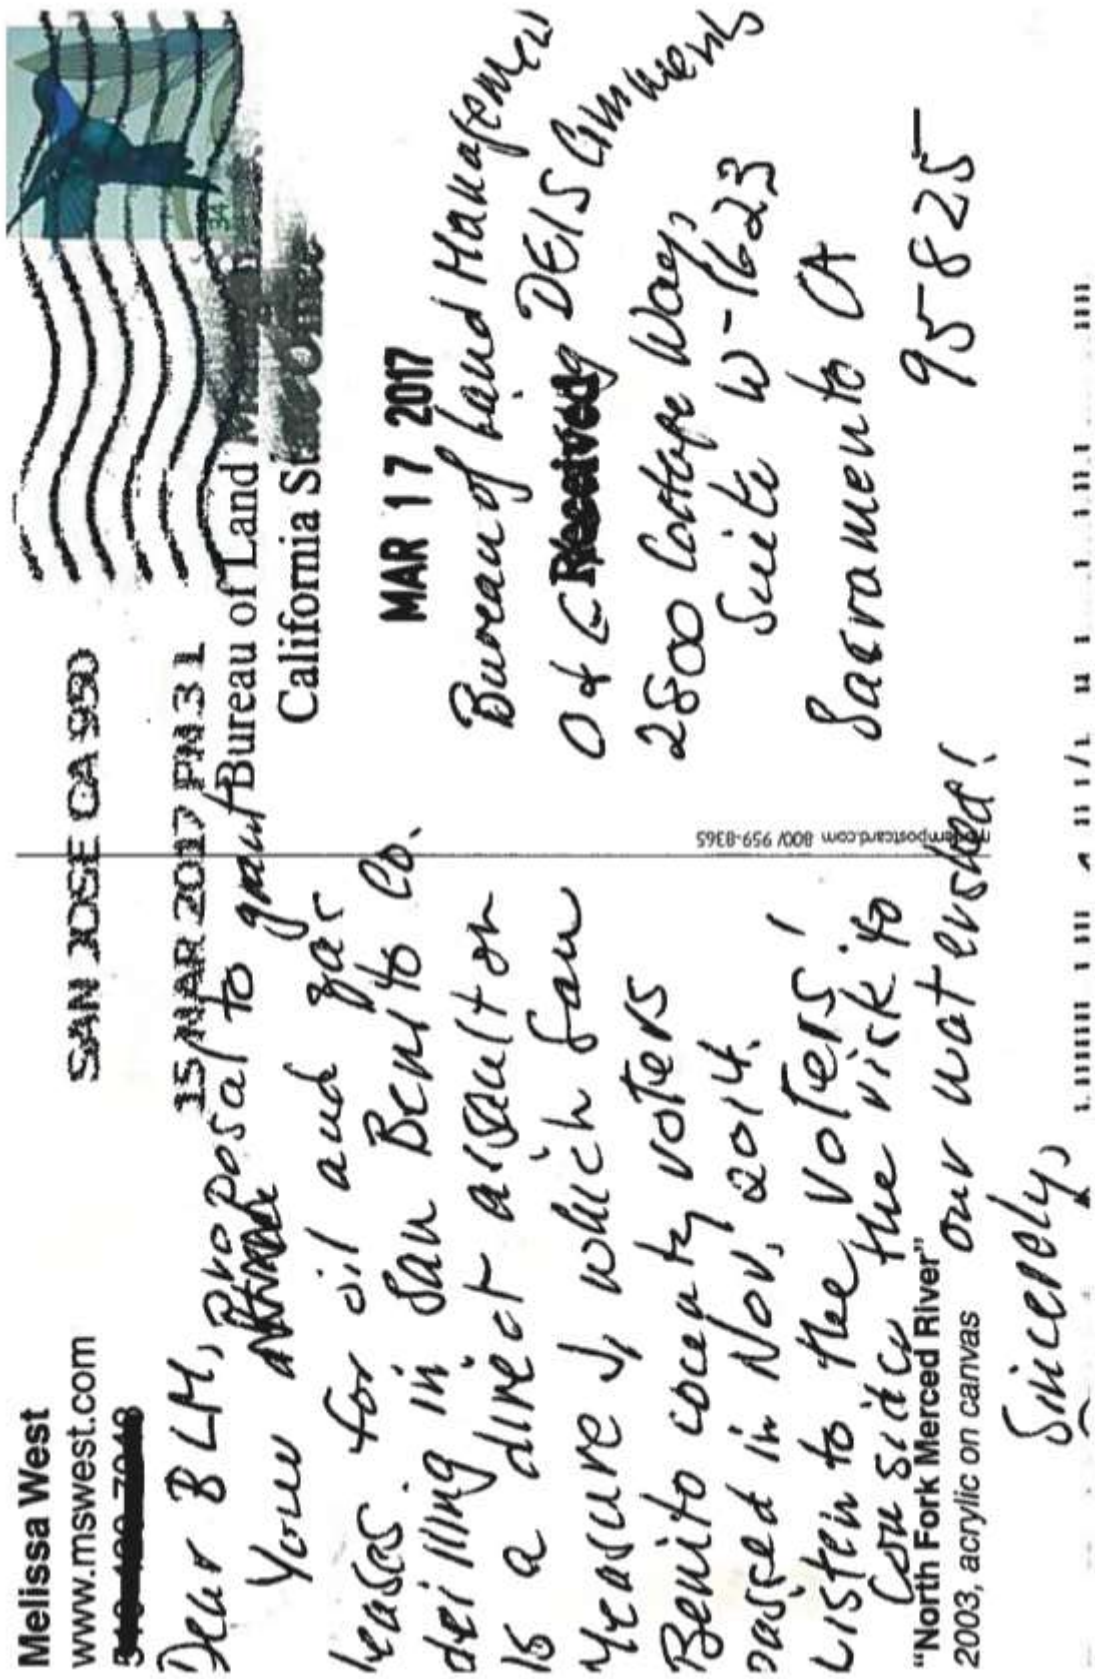 Melissa West
www.mswest.com
Dear BLM,
Your proposal to grant
leases for oil and gas
drilling in San Benito Co.
is a direct assault on
Measure J, which San
Benito county voters
passed in Nov. 2014.
Listen to the voters!
Consider the risk to
our watershed!
Sincerely,
"North Fork Merced River"
2003, acrylic on canvas
SAN JOSE CA 950
15 MAR 2017 PM 3 L
34
Bureau of Land
California
MAR 17 2017
Received
Bureau of Land Management
O & G DEIS Comments
2800 Cottage Way,
Suite W-1623
Sacramento CA
95825
postcard.com 800/ 959-8365